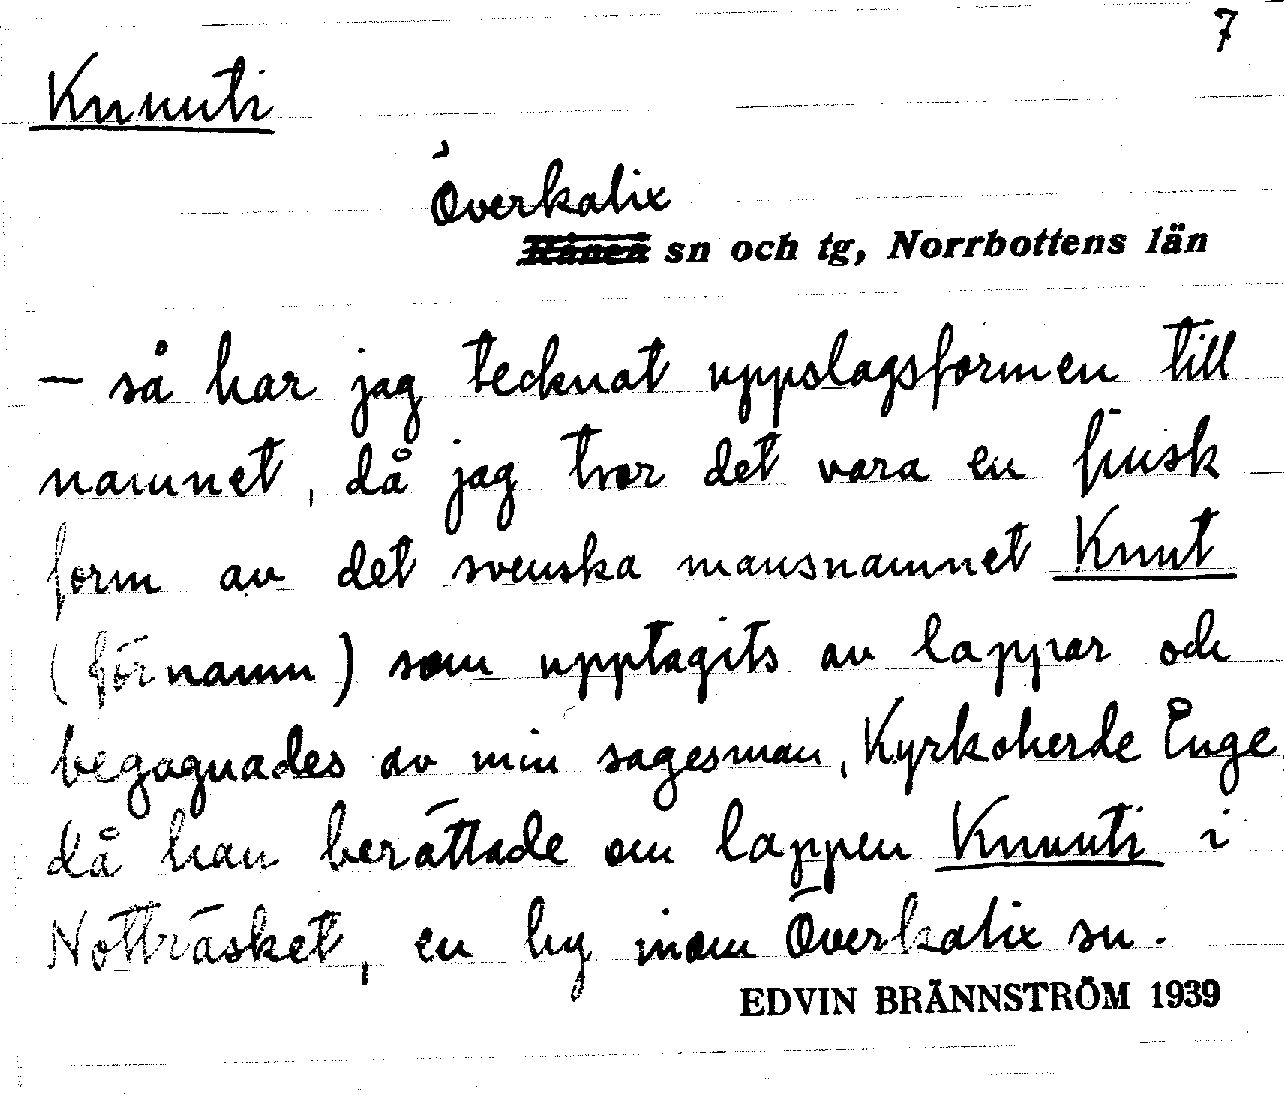 7
Knuuti
Överkalix
Råneå sn och tg, Norrbottens län
— så har jag tecknat uppslagsformen till
namnet, då jag tror det vara en finsk
form av det svenska mansnamnet Knut
(förnamn) som upptagits av lappar och
begagnades av min sagesman, Kyrkoherde Enge
då han berättade om lappen Knuuti i
Notträsket, en by inom Överkalix sn.
EDVIN BRÄNNSTRÖM 1939